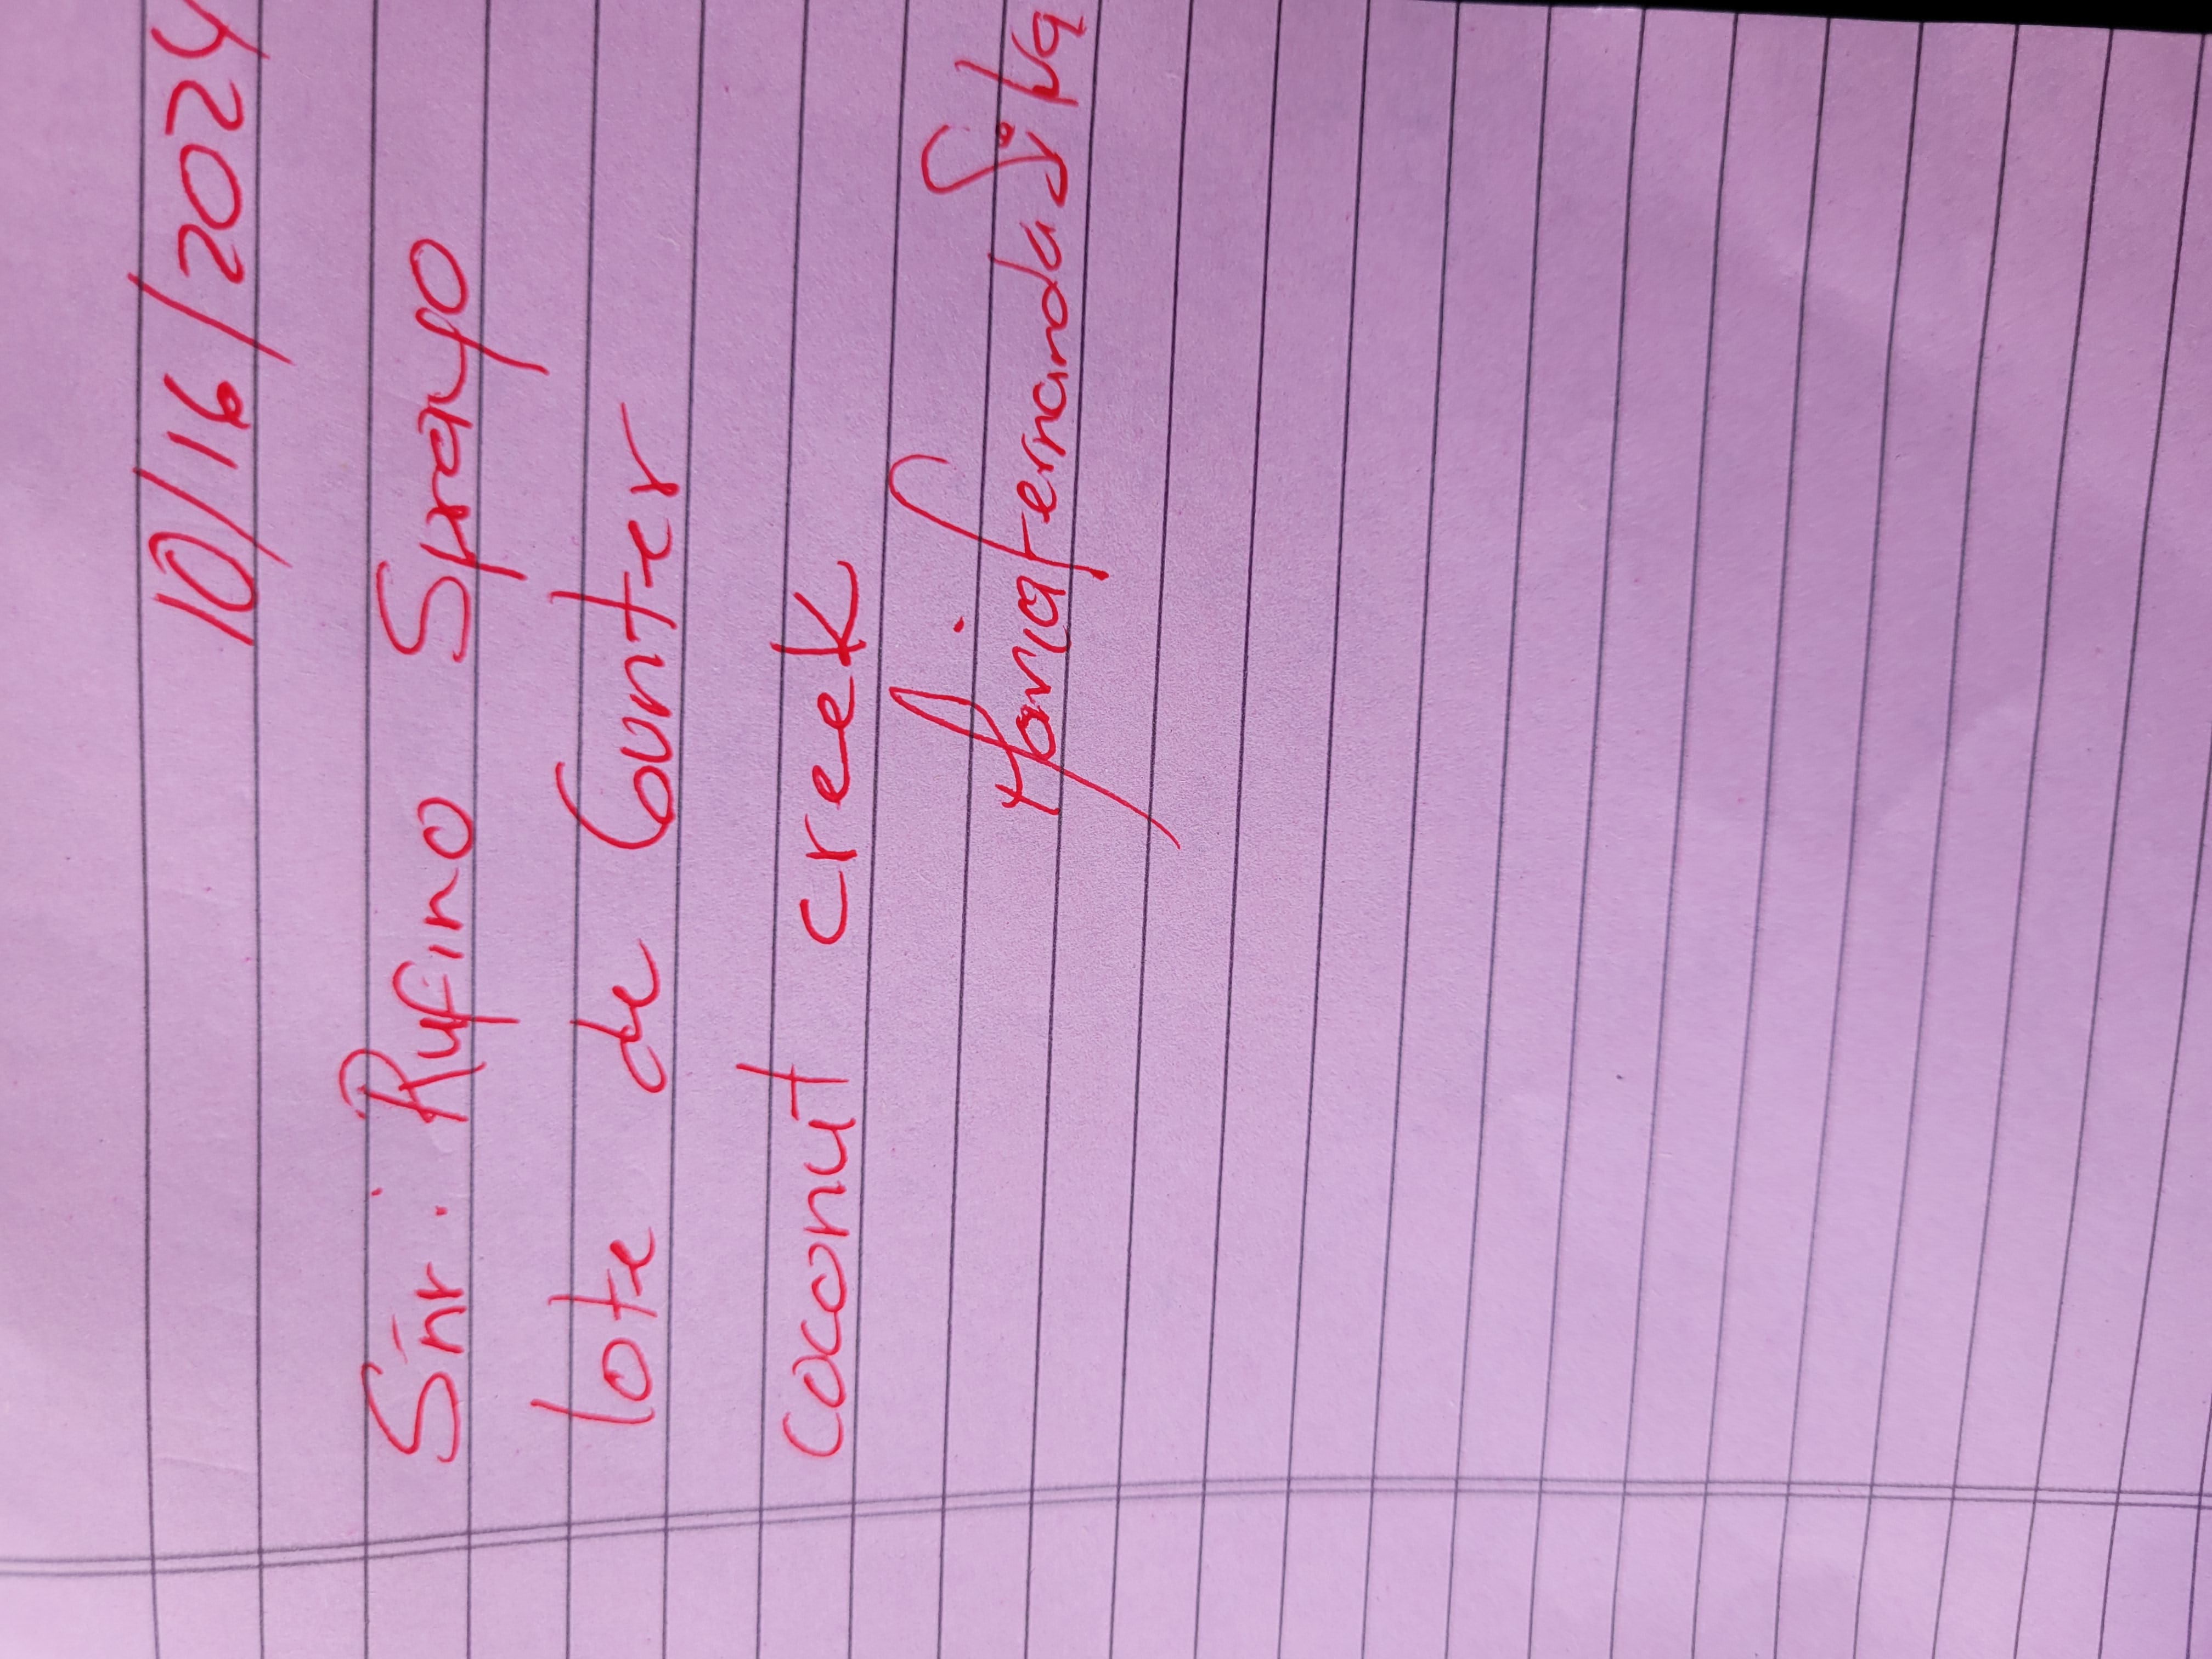 10/16/2024
Sñr. Rufino Sprayo
lote de Counter
coconut creek
Maria fernanda Silva